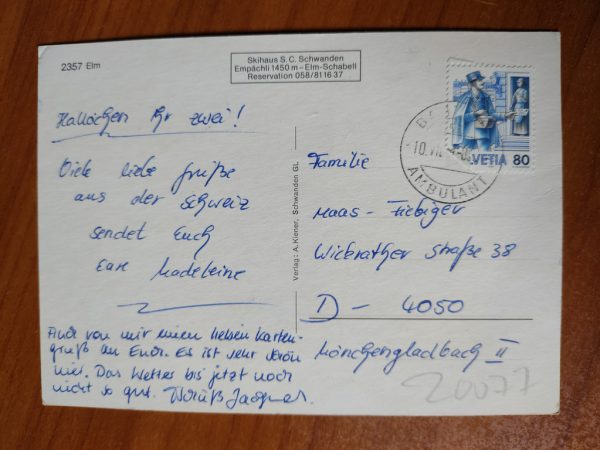 2357 Elm
Skihaus S.C. Schwanden
Empächli 1450 m – Elm-Schabell
Reservation 058/811637
Hallöchen Ihr zwei!
Viele liebe Grüße
aus der Schweiz
sendet Euch
Eure Madeleine
Auch von mir einen lieben Karten-
gruß an Euch. Es ist sehr schön
hier. Das Wetter bis jetzt noch
nicht so gut. Gruß
Verlag: A. Kiener, Schwanden GL
HELVETIA 80
10.VII
AMBULANT
Familie
Maas - Fiebiger
Wickrather Straße 38
D - 4050
Mönchengladbach II
20077